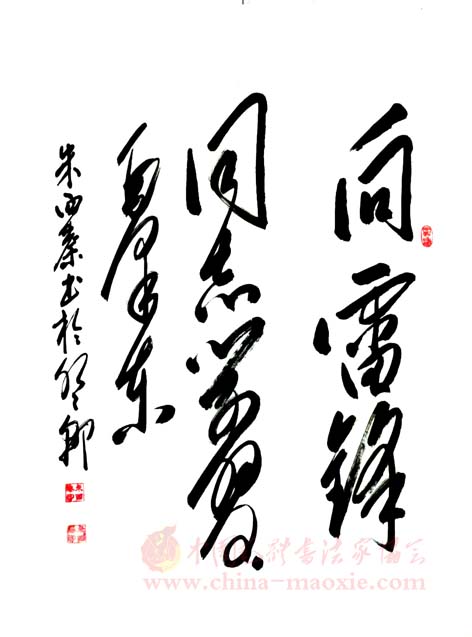 向雷锋
同志学习
毛泽东
朱西秦书于
中国毛体书法家协会
www.china-maoxie.com